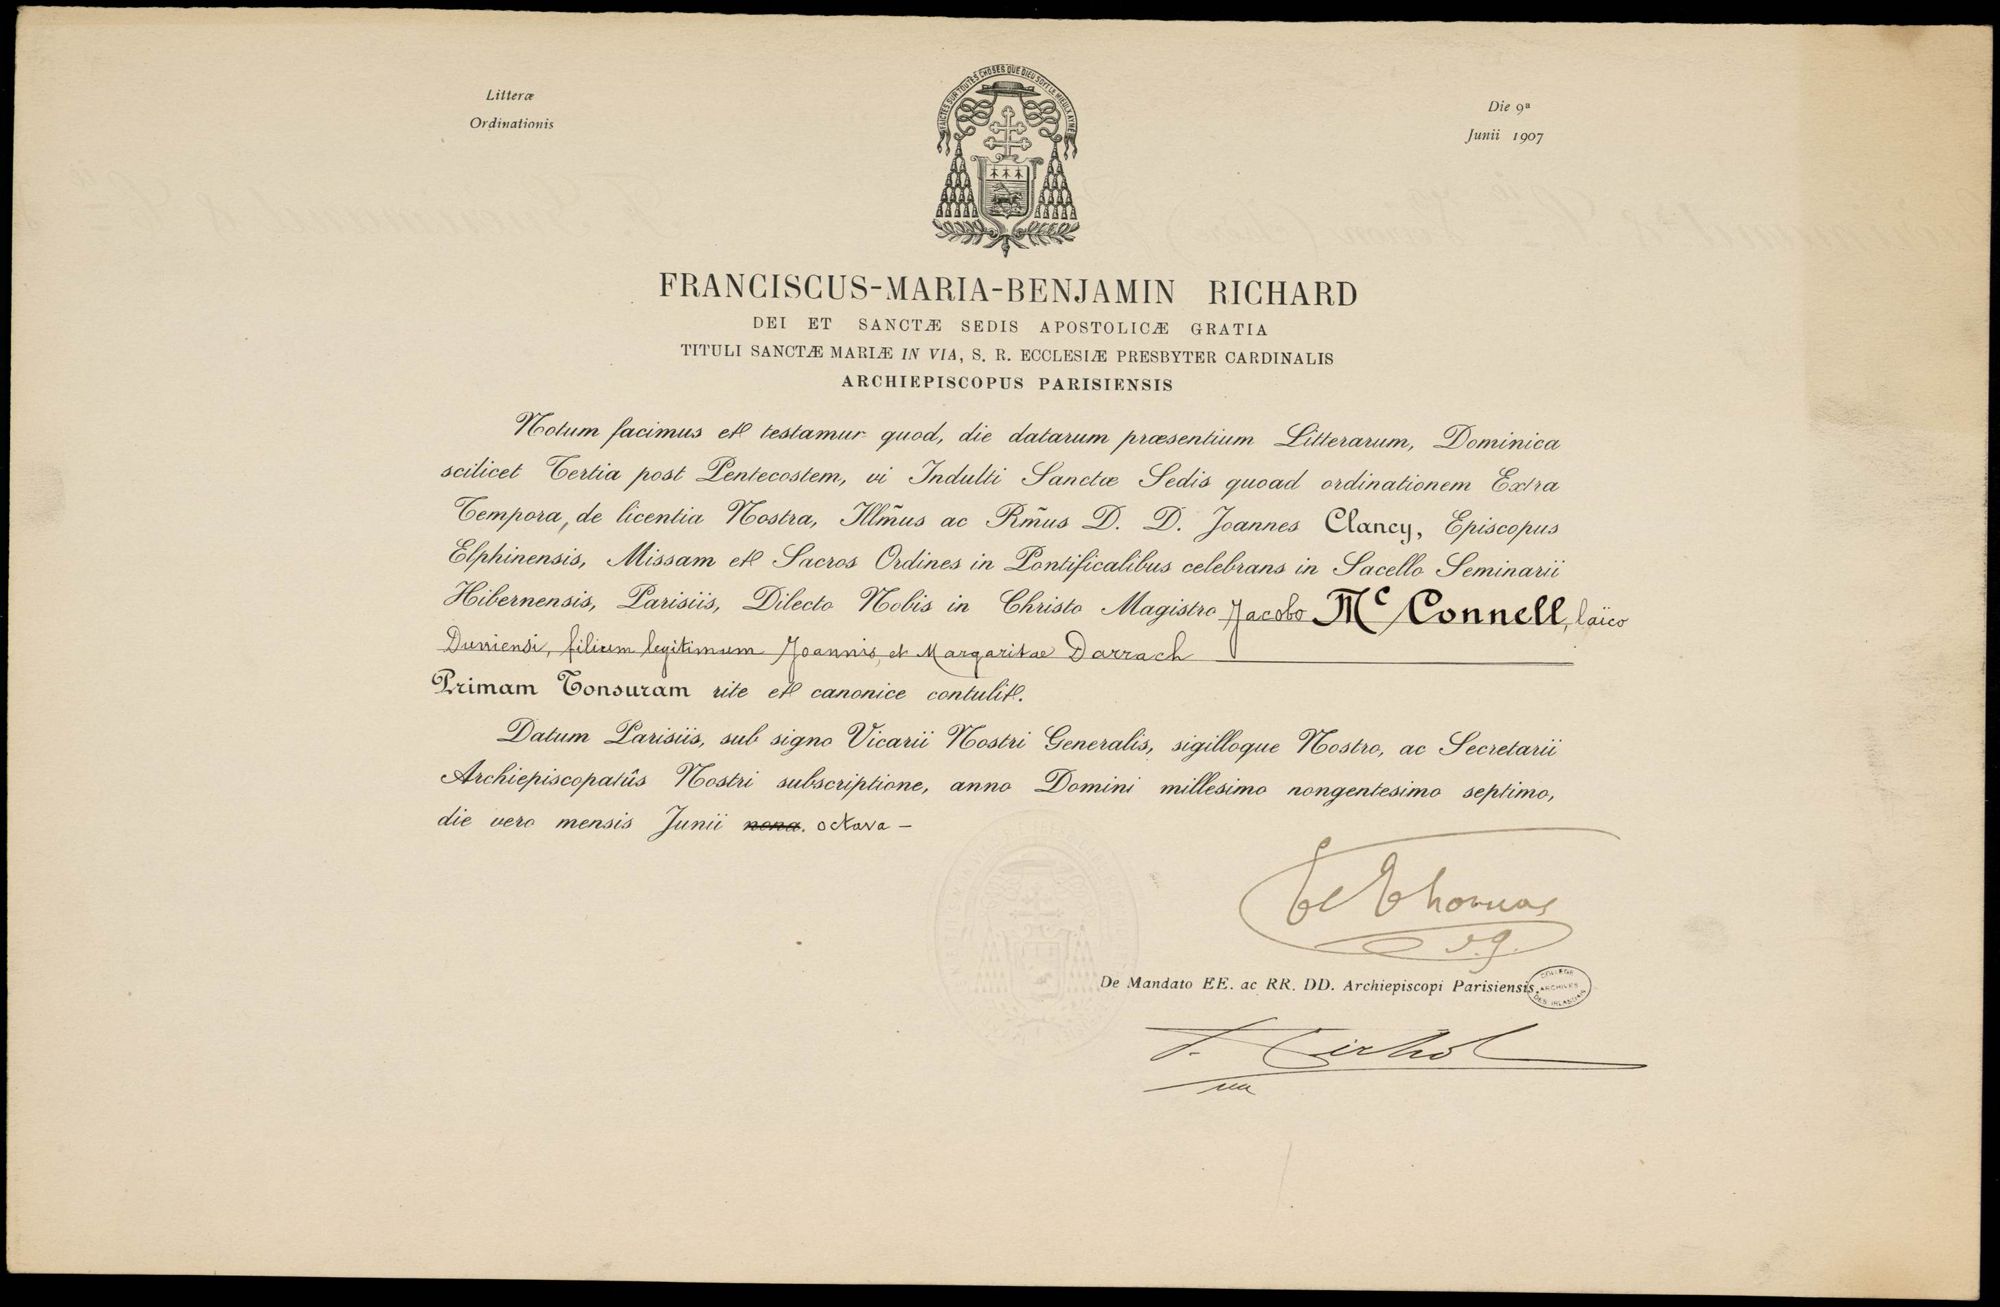 FAICTES SUR TOUTES CHOSES QUE DIEU SOYT LE MIEULX AYME
Litteræ
Ordinationis
Die 9ª
Junii 1907
FRANCISCUS-MARIA-BENJAMIN RICHARD
DEI ET SANCTÆ SEDIS APOSTOLICÆ GRATIA
TITULI SANCTÆ MARIÆ IN VIA, S. R. ECCLESIÆ PRESBYTER CARDINALIS
ARCHIEPISCOPUS PARISIENSIS
Notum facimus et testamur quod, die datarum præsentium Litterarum, Dominica
scilicet Tertia post Pentecostem, vi Indulti Sanctæ Sedis quoad ordinationem Extra
Tempora, de licentia Nostra, Illm̃us ac Rm̃us D. D. Joannes Clancy, Episcopus
Elphinensis, Missam et Sacros Ordines in Pontificalibus celebrans in Sacello Seminarii
Hibernensis, Parisiis, Dilecto Nobis in Christo Magistro Jacobo Mc Connell, laïco
Dunensi, filium legitimum Joannis, et Margaritae Darrach
Primam Tonsuram rite et canonice contulit.
Datum Parisiis, sub signo Vicarii Nostri Generalis, sigilloque Nostro, ac Secretarii
Archiepiscopatûs Nostri subscriptione, anno Domini millesimo nongentesimo septimo,
die vero mensis Junii nona. octava -
Thomas
v.g.
De Mandato EE. ac RR. DD. Archiepiscopi Parisiensis.
COLLEGE
ARCHIVES
DES IRLANDAIS